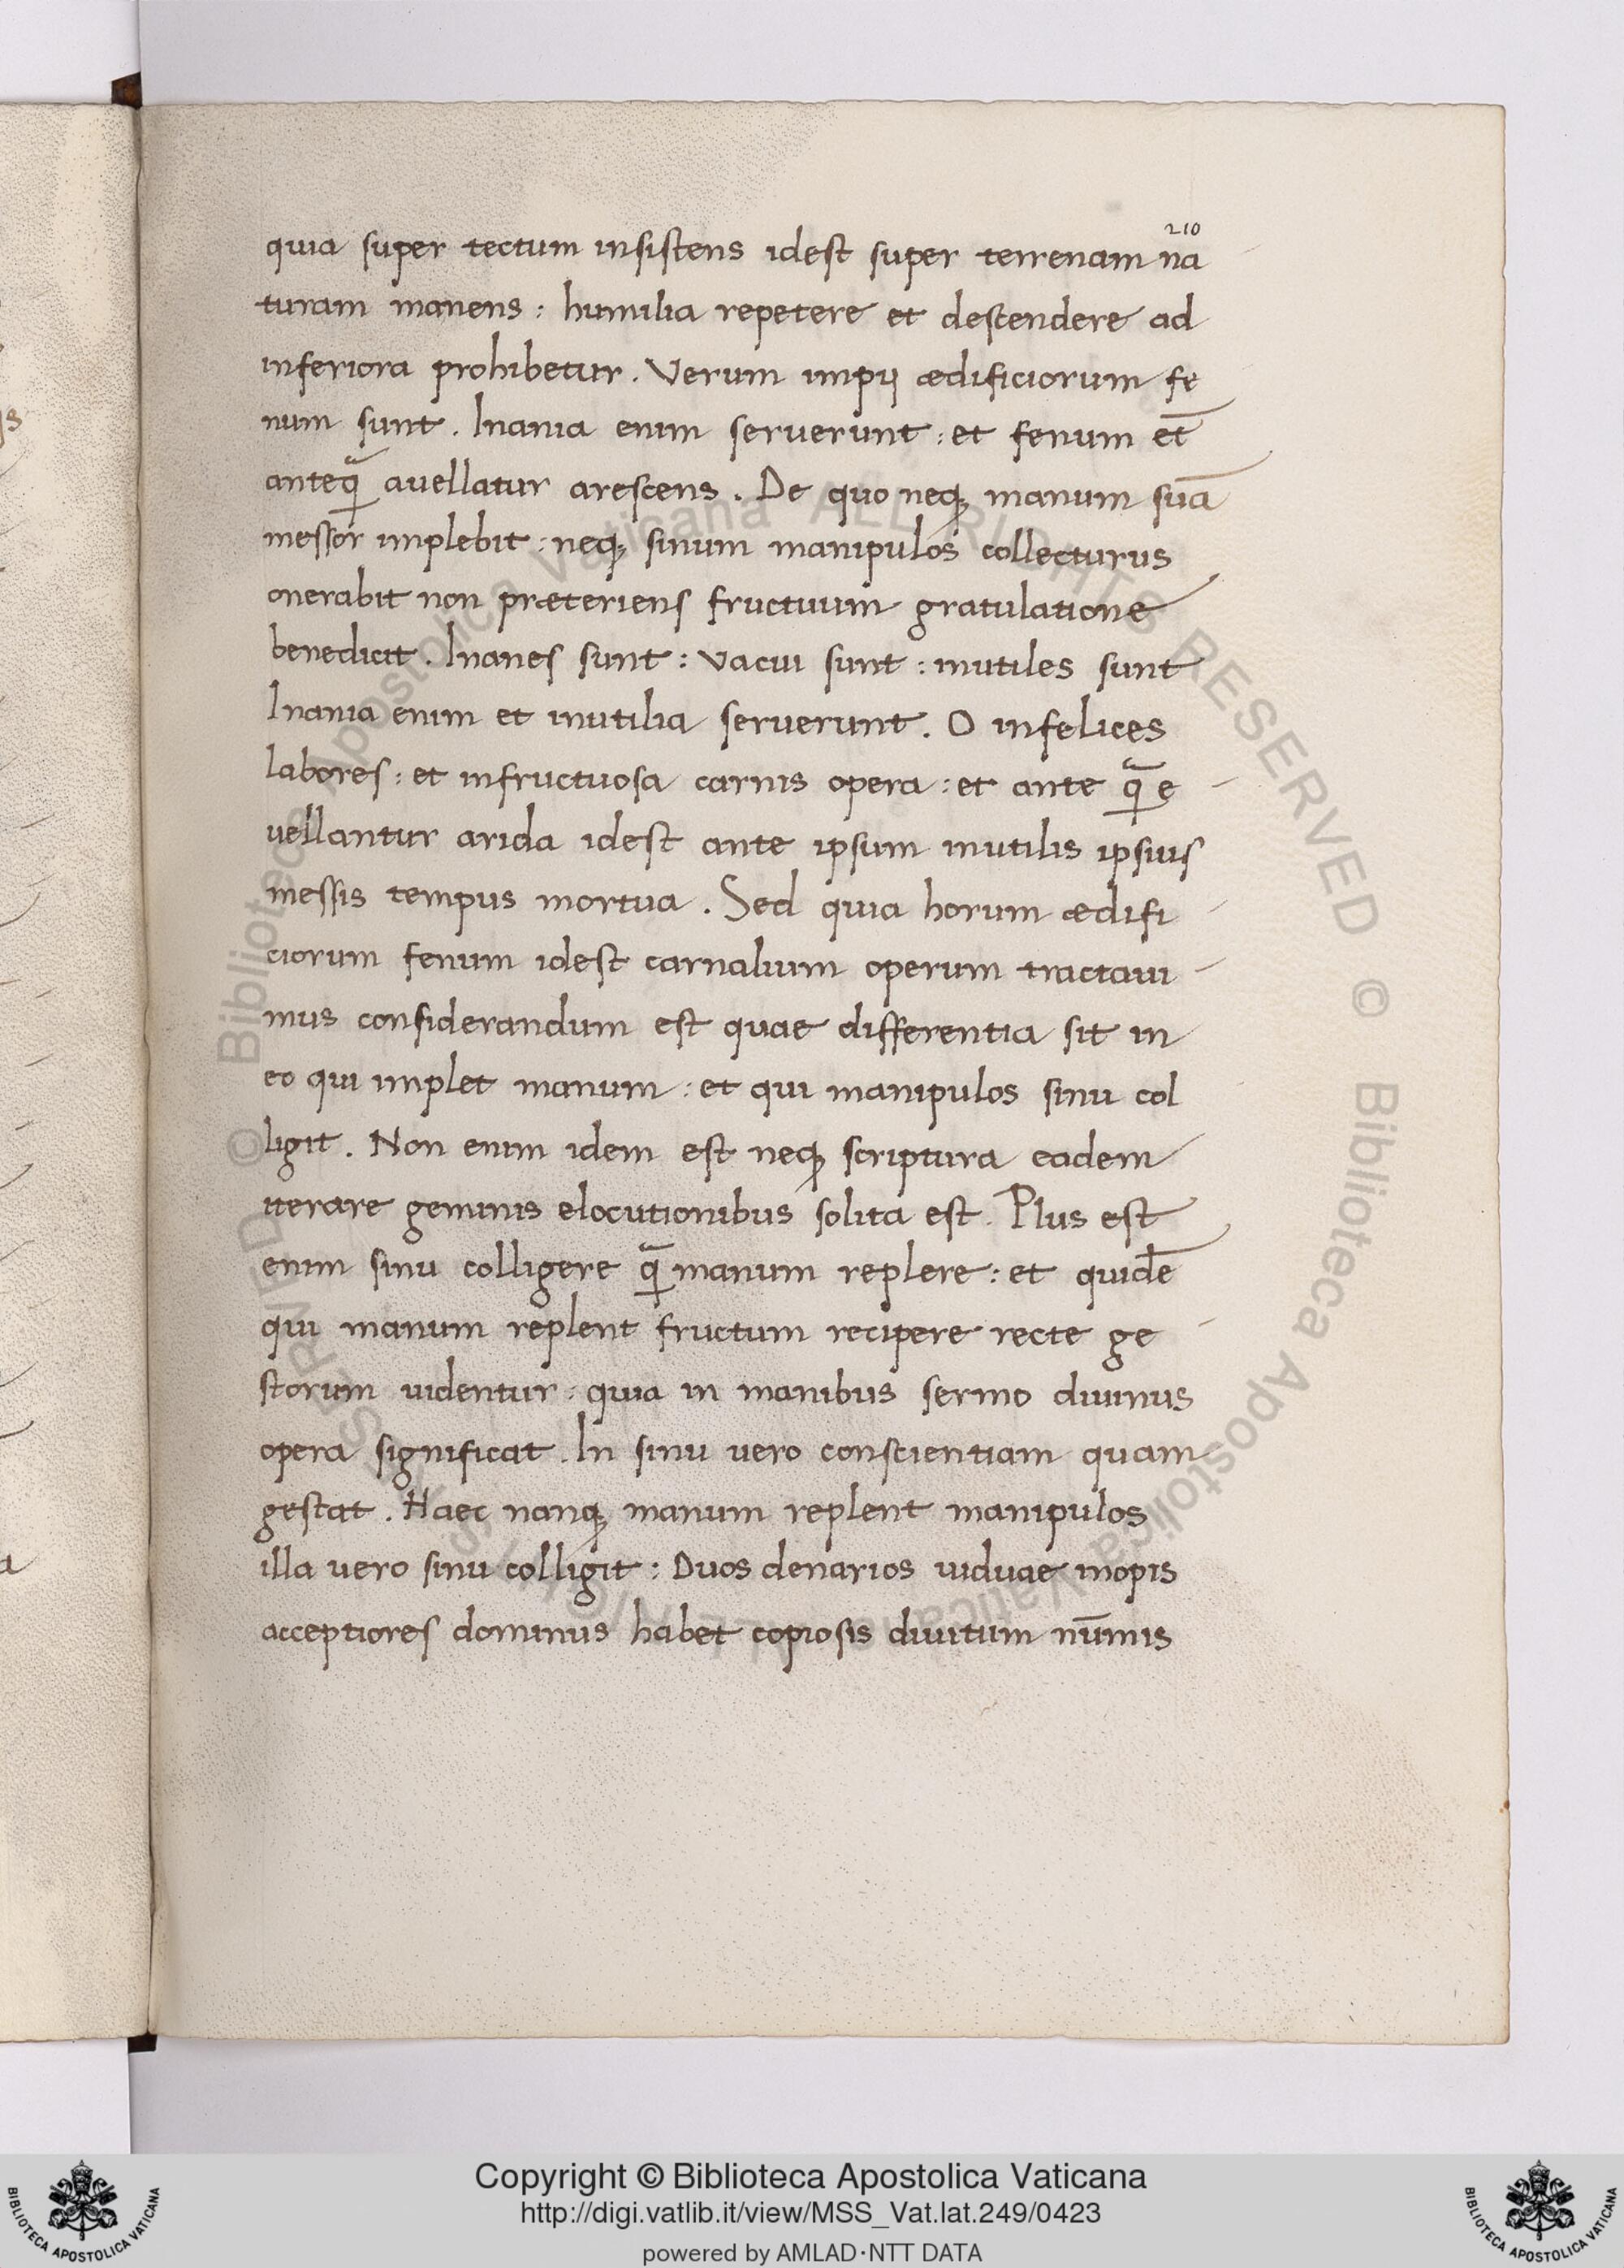 210
quia super tectum insistens idest super terrenam na
turam manens : humilia repetere et descendere ad
inferiora prohibetur . Verum impij ædificiorum fe
num sunt . Inania enim serverunt : et fenum et̄
anteq̄ avellatur arescens . De quo neq; manum suā
messor implebit : neq; sinum manipulos collecturus
onerabit non præteriens fructuum gratulatione
benedicit . Inanes sunt : vacui sunt : inutiles sunt
Inania enim et inutilia serverunt . O infelices
labores : et infructuosa carnis opera : et ante q̄ e
vellantur arida idest ante ipsum inutilis ipsius
messis tempus mortua . Sed quia horum ædifi
ciorum fenum idest carnalium operum tractavi
mus considerandum est quae differentia sit in
eo qui implet manum : et qui manipulos sinu col
ligit . Non enim idem est neq; scriptura eadem
iterare geminis elocutionibus solita est . Plus est
enim sinu colligere q̄ manum replere : et quidē
qui manum replent fructum recipere recte ge
storum videntur : quia in manibus sermo divinus
opera significat . In sinu vero conscientiam quam
gestat . Haec nanq; manum replent manipulos
illa vero sinu colligit : Duos denarios viduae inopis
acceptiores dominus habet copiosis divitum nūmis
© Biblioteca Apostolica Vaticana ALL RIGHTS RESERVED © Biblioteca Apostolica Vaticana ALL RIGHTS RESERVED
Copyright © Biblioteca Apostolica Vaticana
http://digi.vatlib.it/view/MSS_Vat.lat.249/0423
powered by AMLAD·NTT DATA
BIBLIOTECA APOSTOLICA VATICANA
BIBLIOTECA APOSTOLICA VATICANA